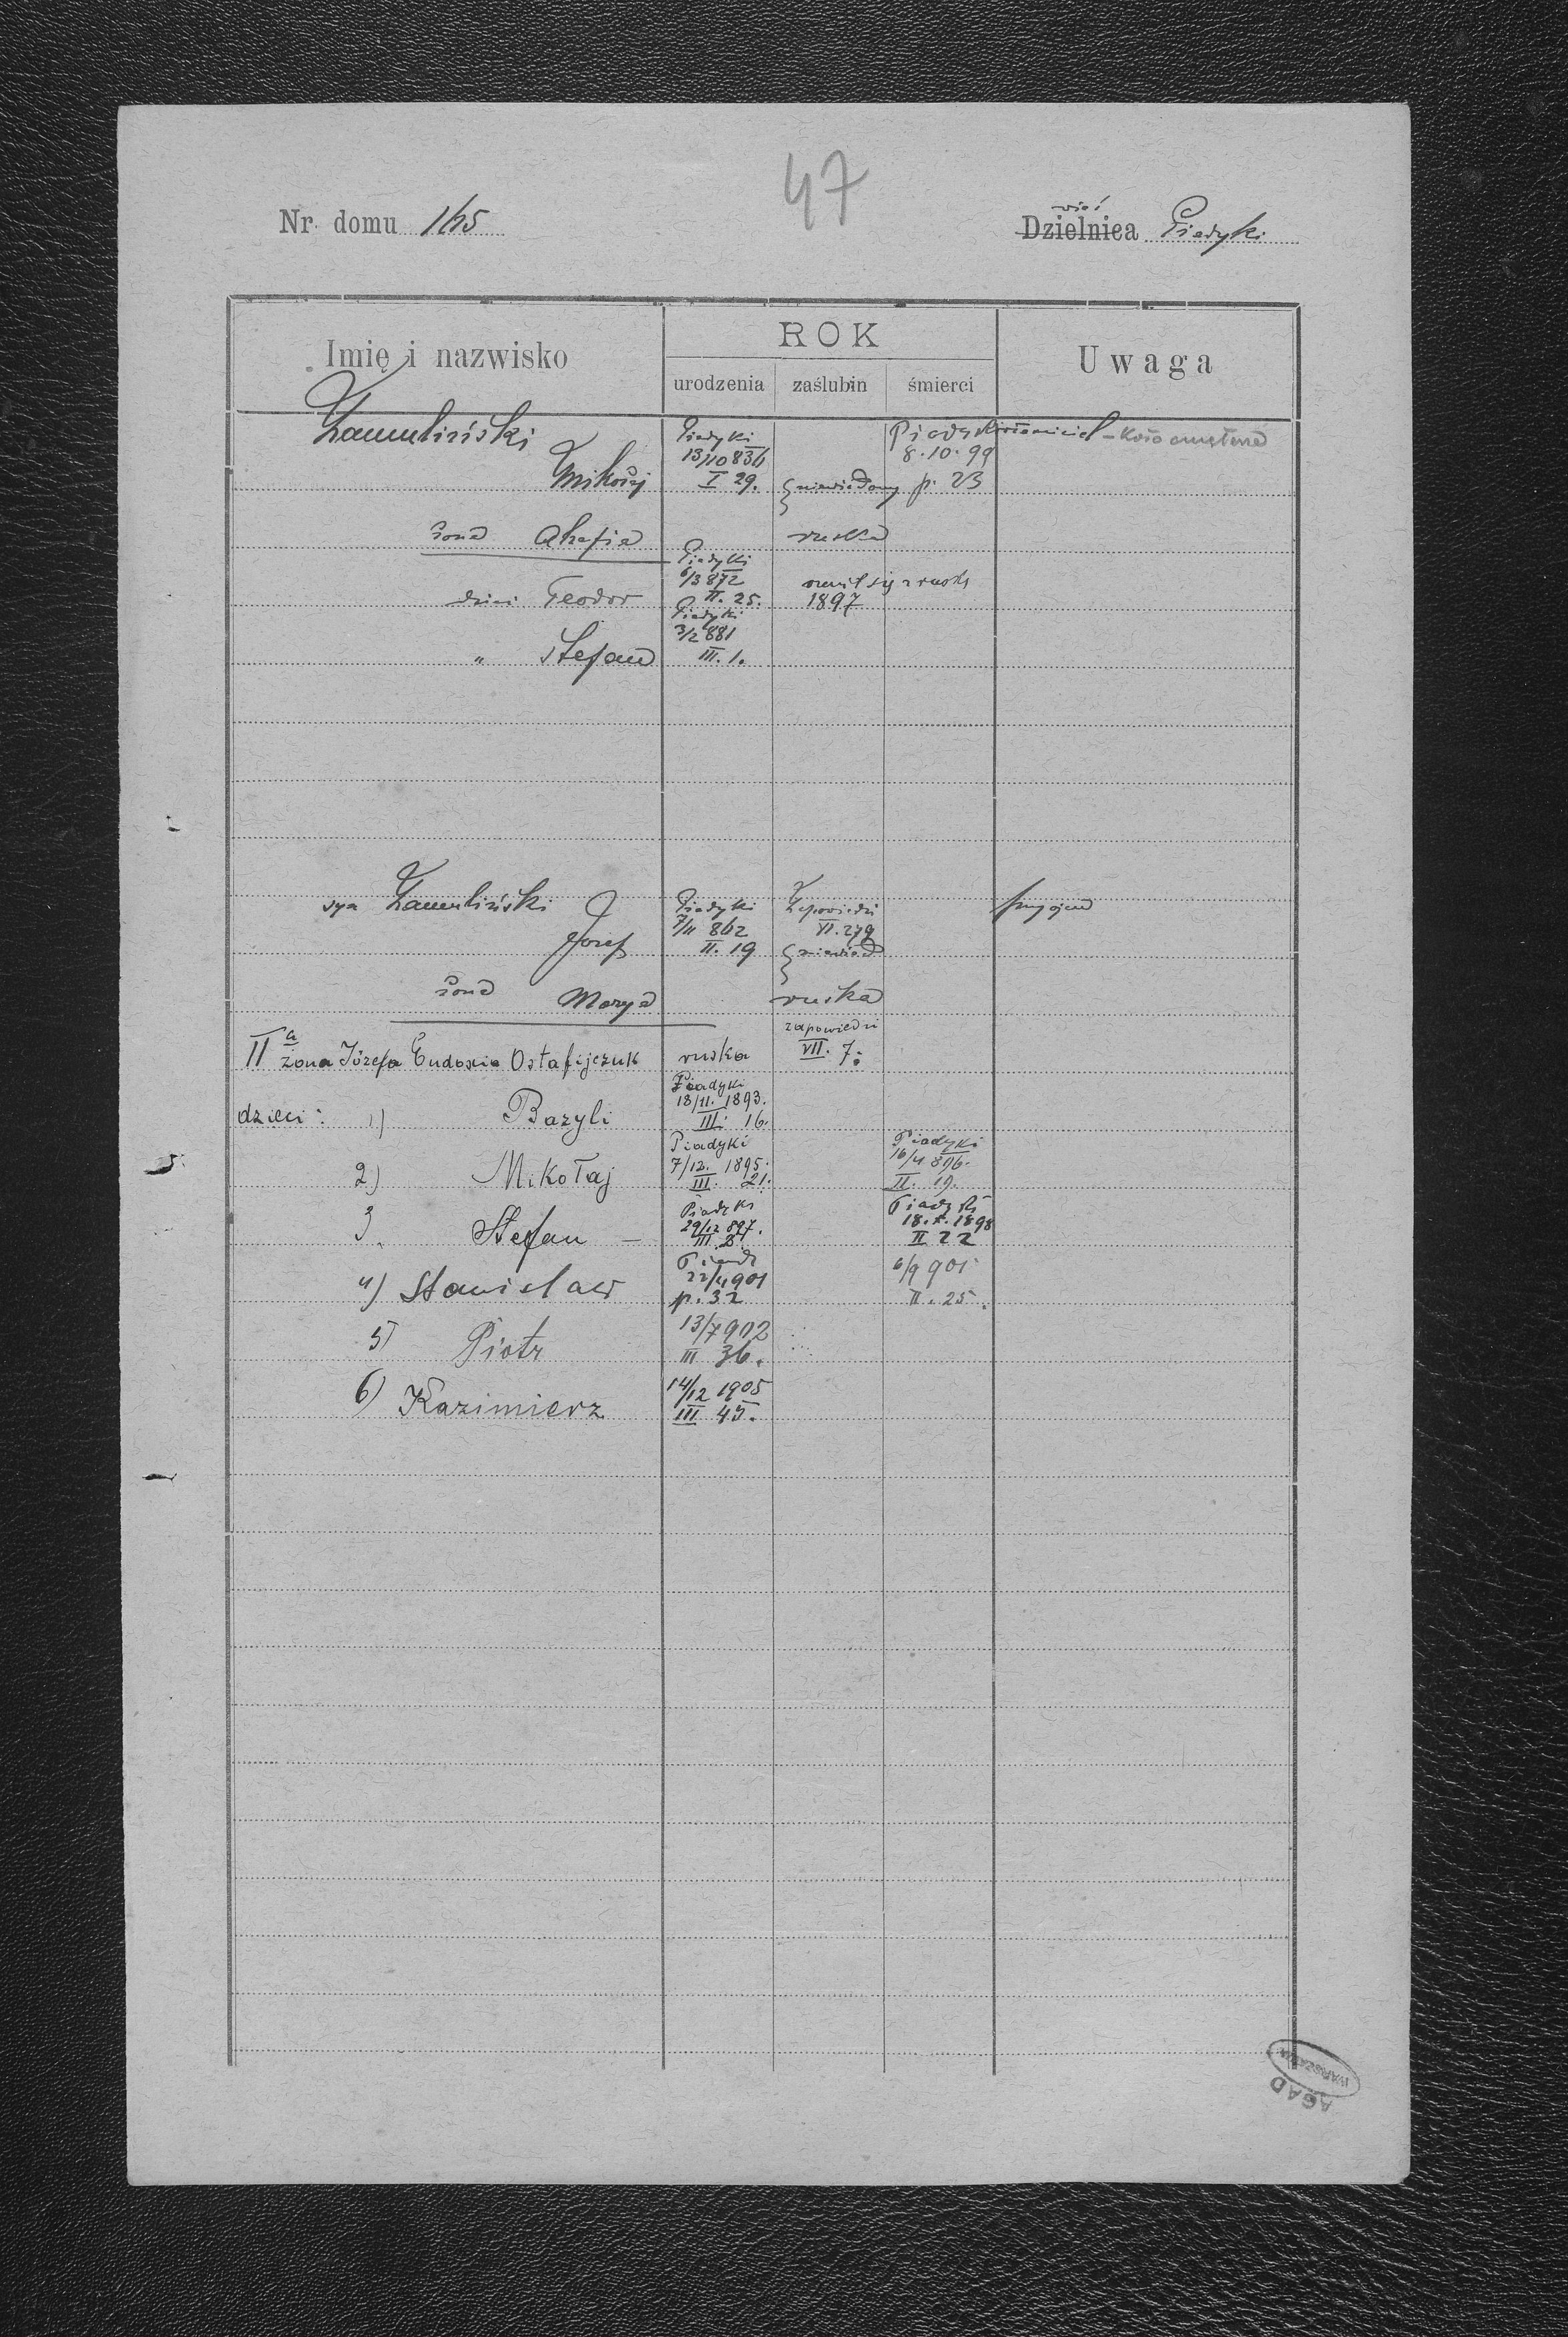 47
Nr domu 165
wieś
Dzielnica Piadyki
Imię i nazwisko
ROK
urodzenia zaślubin śmierci
Uwaga
Zamuliński
Mikołaj
Piadyki
13/10 836
I 29.
niewiadomy
Piadyki
8.10.99
p. 23
żona Ahafia
ruska
dzieci Teodor
Piadyki
6/3 872
II. 25.
ożenił się z ruską
1897
" Stefan
Piadyki
3/2 881
III. 1.
syn Zamuliński
Józef
Piadyki
7/11 862
II. 19
Zapowiedzi
VI. 279
niewiad
przy ojcu
żona Marya
ruska
IIa żona Józefa Eudoxia Ostafijczuk ruska
zapowiedzi
VII. 7.
dzieci: 1) Bazyli
Piadyki
18/11. 1893.
III. 16.
2) Mikołaj
Piadyki
7/12. 1895.
III. 21.
Piadyki
16/4 896.
II. 19.
3. Stefan –
Piadyki
29/12 897.
III.
Piadyki
18.X.1898
II 22
4) Stanisław
Piad
22/4 901
p. 32
6/9 901
II. 25.
5) Piotr
13/7 902
III 36.
6) Kazimierz
14/12 1905
III 45.
AGAD
WARSZAWA